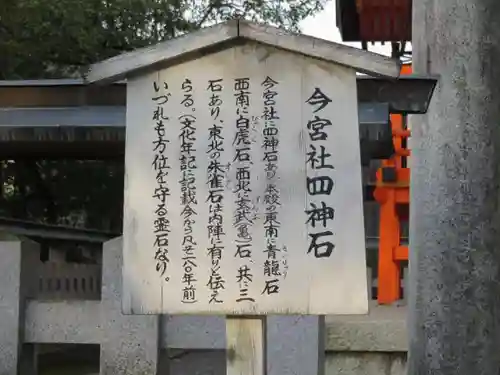 今宮社四神石
今宮社に四神石あり、本殿の東南に青龍石
西南に白虎石、西北に玄武(亀)石、共に三
石あり、東北の朱雀石は内陣に有りと伝え
らる。(文化年記に記載今から凡そ二八〇年前)
いづれも方位を守る霊石なり。